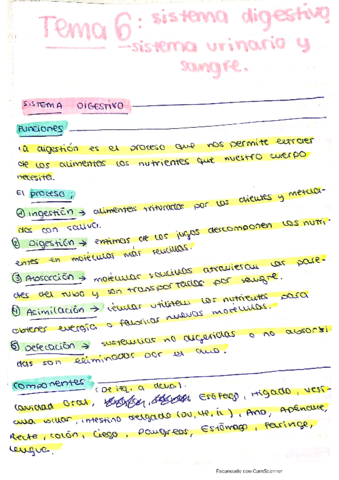 Tema 6: sistema digestivo,
sistema urinario y
sangre.
SISTEMA DIGESTIVO
Funciones
La digestión es el proceso que nos permite extraer
de los alimentos los nutrientes que nuestro cuerpo
necesita.
El proceso:
1) Ingestión → alimentos triturados por los dientes y mezcla-
dos con saliva.
2) Digestión → enzimas de los jugos descomponen los nutri-
entes en moléculas más sencillas.
3) Absorción → moléculas sencillas atraviesan las pare-
des del tubo y son transportadas por sangre.
4) Asimilación → células utilizan los nutrientes para
obtener energía o fabricar nuevas moléculas.
5) Defecación → sustancias no digeridas o no absorbi-
das son eliminadas por el ano.
Componentes (De izq. a dcha).
Cavidad Oral, Esófago, Hígado, vesí-
cula biliar, intestino delgado (du, ye, il), Ano, Apéndice,
Recto, colón, Ciego, Páncreas, Estómago, Faringe,
Lengua.
Escaneado con CamScanner